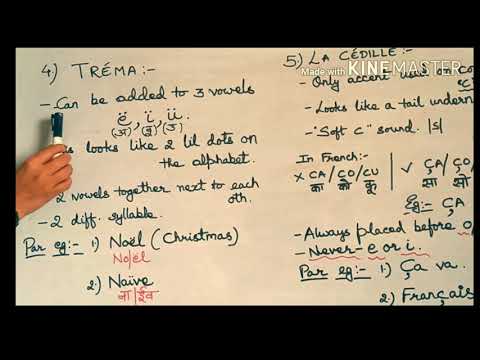 4.) TRÉMA:-
- Can be added to 3 vowels
ë, ï, ü.
looks like 2 lil dots on
the alphabet.
2 vowels together next to each
oth.
- 2 diff. syllable.
Par eg:- 1.) Noël (Christmas)
No/ël
2.) Naïve
ना/ईव
5.) LA CÉDILLE:-
Made with KINEMASTER
- Only accent
- Looks like a tail undern
- "Soft C" sound. |s|
In French:-
x CA/CO/CU
का को कू
✓ ÇA/ÇO/
सा सो
Eg:- ÇA
- Always placed before o,
- Never - e or i.
Par eg:- 1.) Ça va.
2.) Français